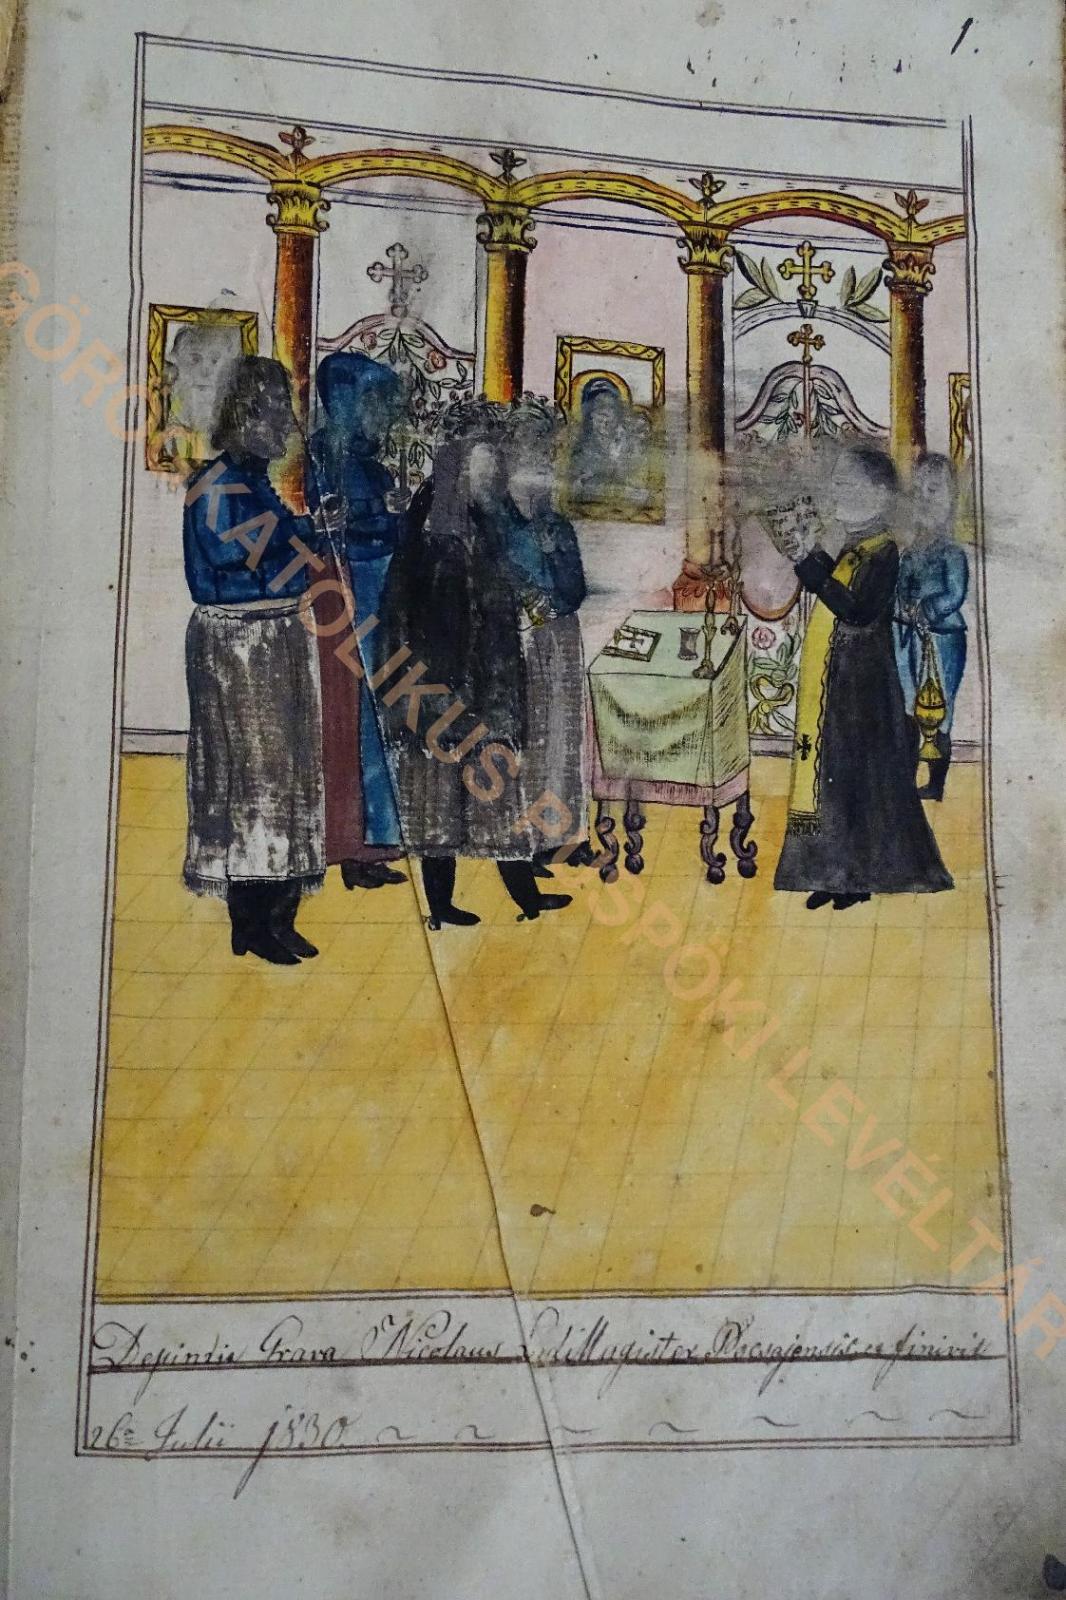 1.
GÖRÖGKATOLIKUS PÜSPÖKI LEVÉLTÁR
Depinxit Grava Nicolaus LudiMagister Pocsajensis et finivit
26a Julii 1830.